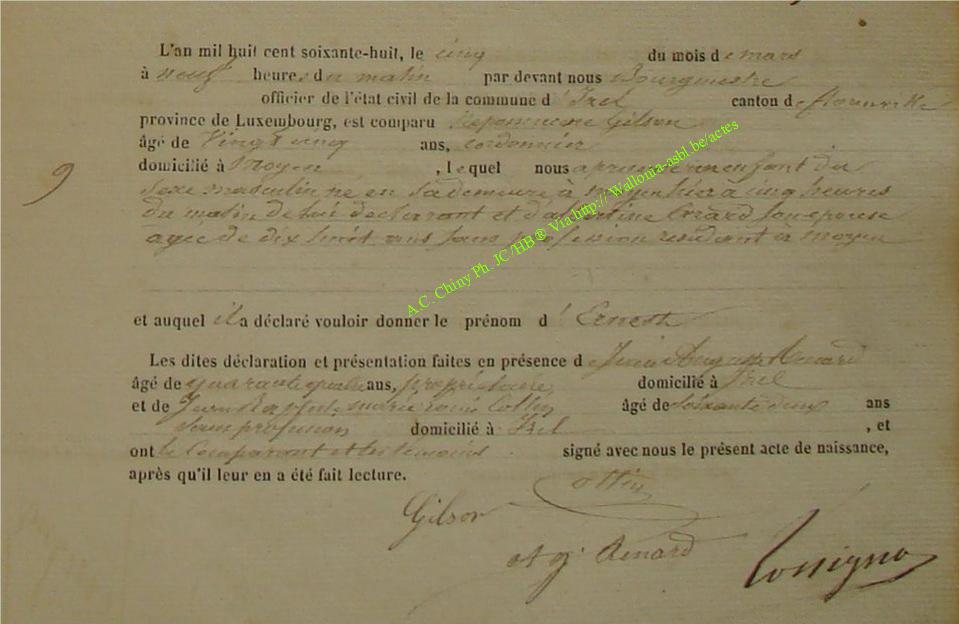 L'an mil huit cent soixante-huit, le cinq du mois de mars
à neuf heures du matin par devant nous Bourgmestre
officier de l'état civil de la commune d'Izel canton de florenville
province de Luxembourg, est comparu Nepomucene Gilson
âgé de Vingt cinq ans, cordonnier
domicilié à Moyen, lequel nous a présenté un enfant du
9
sexe masculin né en sa demeure à Moyen hier à cinq heures
du matin de lui déclarant et d' Gérard son epouse
agée de dix huit ans sans profession résidant à moyen
et auquel il a déclaré vouloir donner le prénom d'Ernest
Les dites déclaration et présentation faites en présence de Renard
âgé de quarante quatre ans, propriétaire domicilié à Izel
et de Jean Baptiste marie louis Collin âgé de soixante deux ans
sans profession domicilié à Izel, et
ont le Comparant et les temoins signé avec nous le présent acte de naissance,
après qu'il leur en a été fait lecture.
ottin
Gilson
Renard
Rossignon
A.C. Chiny Ph. JC/HB® Via http://Wallonia-asbl.be/actes